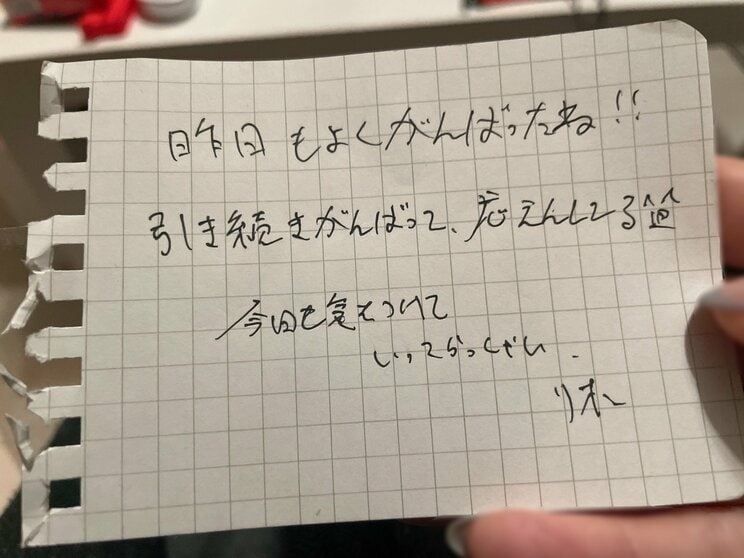 昨日もよくがんばったね!!
引き続きがんばって、応えんしてる
今日も気をつけて
いってらっしゃい.